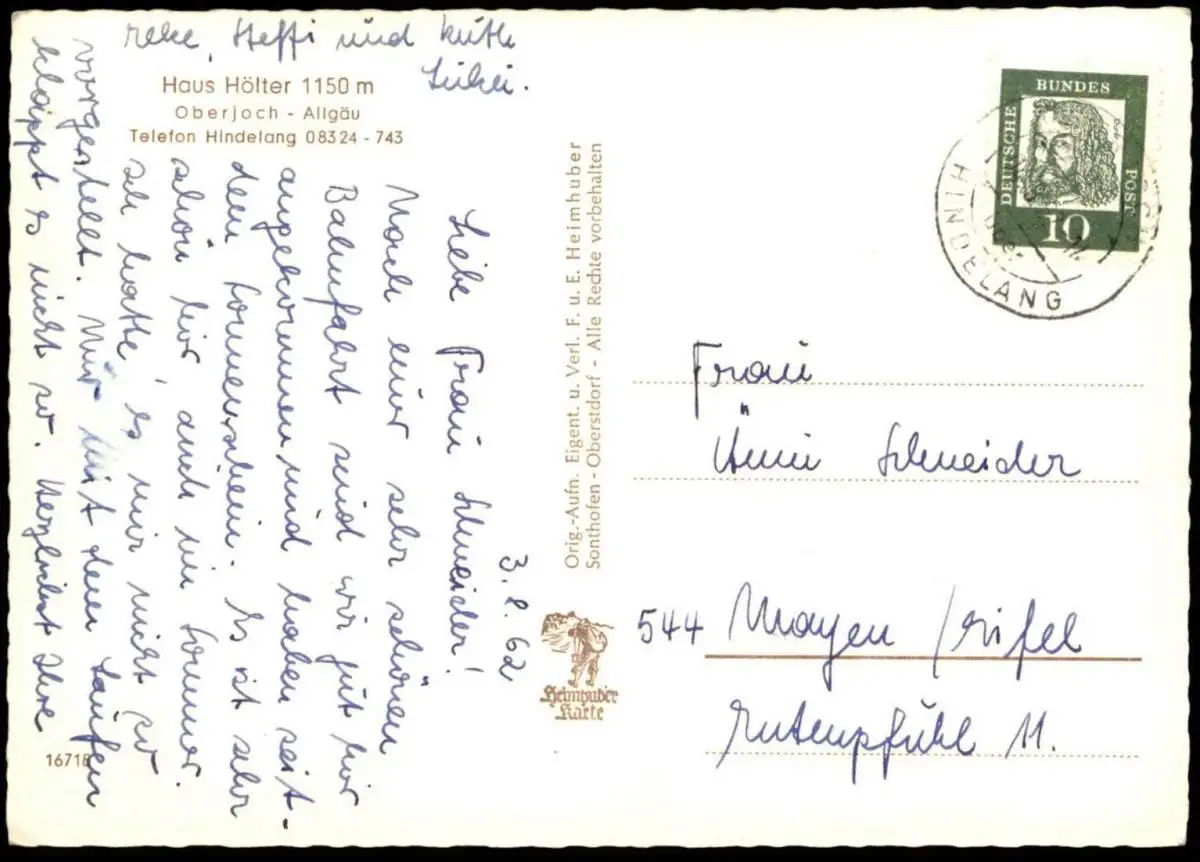 Haus Hölter 1150 m
Oberjoch - Allgäu
Telefon Hindelang 08324 - 743
3. 8. 62
Liebe Frau Schneider!
Nach einer sehr schönen
Bahnfahrt sind wir gut hier
angekommen und haben seit-
dem Sonnenschein. Es ist sehr
schön hier auch im Sommer.
Ich hatte es mir nicht so
vorgestellt. Nur mit dem Laufen
klappt es nicht so. Herzlichst Ihre
Steffi und
Orig.-Aufn. Eigent. u. Verl. F. u. E. Heimhuber
Sonthofen - Oberstdorf - Alle Rechte vorbehalten
Heimhuber
Karte
16718
DEUTSCHE
BUNDES
POST
10
HINDELANG
Frau
Änni Schneider
544 Mayen / Eifel
Entenpfuhl 11.